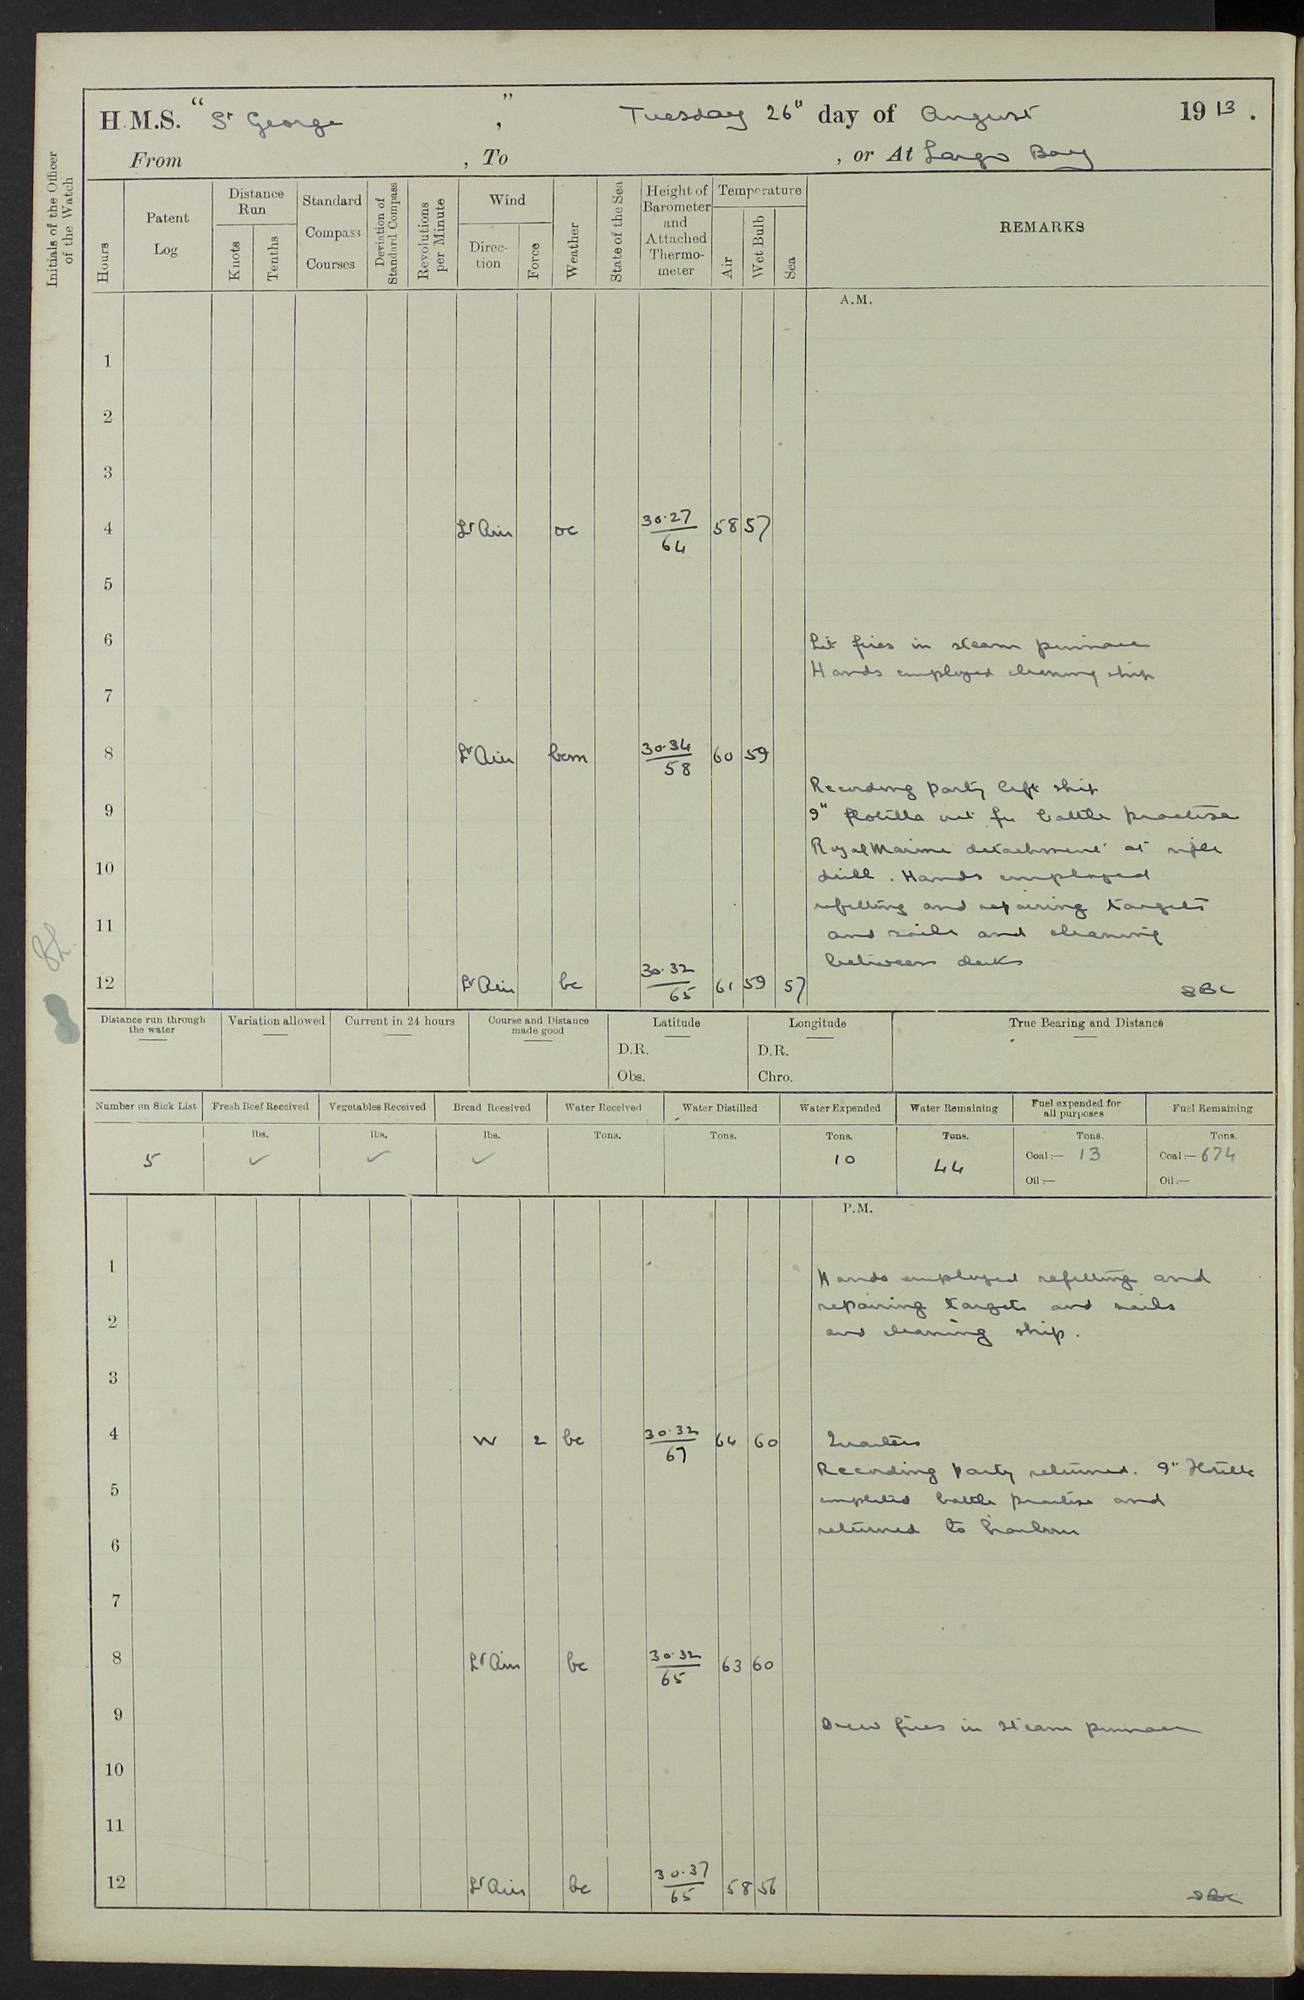 H.M.S. "St George", Tuesday 26" day of August 1913.
From , To , or At Largo Bay
Initials of the Officer of the Watch
Hours
Patent Log
Distance Run
Knots
Tenths
Standard Compass Courses
Deviation of Standard Compass
Revolutions per Minute
Wind
Direction
Force
Weather
State of the Sea
Height of Barometer and Attached Thermometer
Temperature
Air
Wet Bulb
Sea
REMARKS
A.M.
1
2
3
4 Lt Airs oc 30.27 / 64 58 57
5
6 Lit fires in steam pinnace
Hands employed cleaning ship
7
8 Lt Airs bcm 30.34 / 58 60 59
Recording party left ship
9 9" flotilla out for battle practise
Royal Marine detachment at rifle
10 drill. Hands employed
refitting and repairing targets
11 and sails and cleaning
between decks
12 Lt Airs bc 30.32 / 65 61 59 57
Distance run through the water
Variation allowed
Current in 24 hours
Course and Distance made good
Latitude
D.R.
Obs.
Longitude
D.R.
Chro.
True Bearing and Distance
Number on Sick List
Fresh Beef Received
Vegetables Received
Bread Received
Water Received
Water Distilled
Water Expended
Water Remaining
Fuel expended for all purposes
Fuel Remaining
lbs. lbs. lbs. Tons. Tons. Tons. Tons. Tons. Tons.
5 ✓ ✓ ✓ 10 44 Coal:— 13 Coal:— 674
Oil:— Oil:—
P.M.
1 Hands employed refitting and
repairing targets and sails
2 and cleaning ship.
3
4 W 2 bc 30.32 / 67 64 60 Quarters
Recording party returned. 9" Flotilla
5 completed battle practise and
returned to harbour
6
7
8 Lt Airs bc 30.32 / 65 63 60
9 Drew fires in steam pinnace
10
11
12 Lt Airs bc 30.37 / 65 58 56